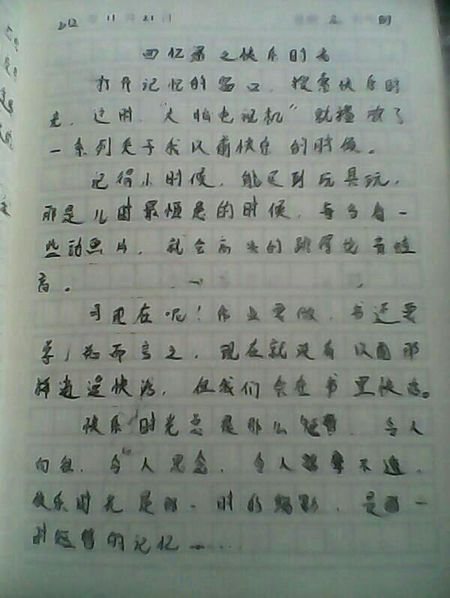 2012 11 21
回忆最之快乐时光
打开记忆的窗口，搜索快乐时
光，这时，"大脑电视机"就播放了
一系列关于我以前快乐的时候。
记得小时候，能见到玩具玩，
那是儿时最惬意的时候，每当看一
些动画片，就会高兴的跳得比青蛙
高。
可现在呢！作业要做，书还要
学，总而言之，现在就没有以前那
样逍遥快活，但我们会在书里快
快乐时光总是那么短暂，令人
向往，令人思念，令人
快乐时光是 时的 是 一
时短暂的记忆……